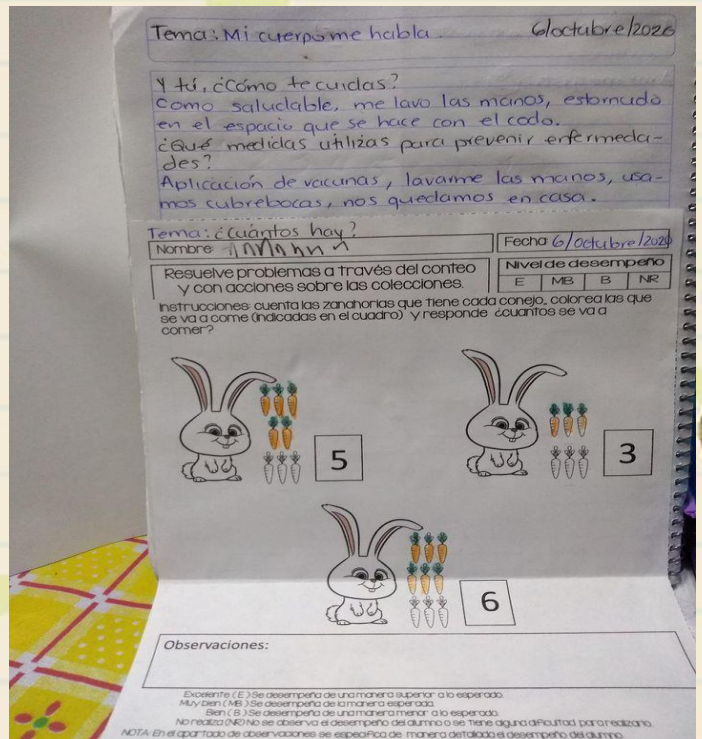 Tema: Mi cuerpo me habla. 6/octubre/2020
Y tú, ¿Cómo te cuidas?
Como saludable, me lavo las manos, estornudo
en el espacio que se hace con el codo.
¿Qué medidas utilizas para prevenir enfermeda-
des?
Aplicación de vacunas, lavarme las manos, usa-
mos cubrebocas, nos quedamos en casa.
Tema: ¿Cuántos hay?
Nombre
Fecha 6/Octubre/2020
Resuelve problemas a través del conteo
y con acciones sobre las colecciones.
Nivel de desempeño
E MB B NR
Instrucciones: cuenta las zanahorias que tiene cada conejo, colorea las que
se va a come (indicadas en el cuadro) y responde ¿cuantos se va a
comer?
5
3
6
Observaciones:
Excelente ( E ) Se desempeña de una manera superior a lo esperado.
Muy bien ( MB ) Se desempeña de la manera esperada.
Bien ( B ) Se desempeña de una manera menor a lo esperado.
No realiza (NR) No se observa el desempeño del alumno o se tiene alguna dificultad para realizarlo.
NOTA: En el apartado de observaciones se especifica de manera detallada el desempeño del alumno.